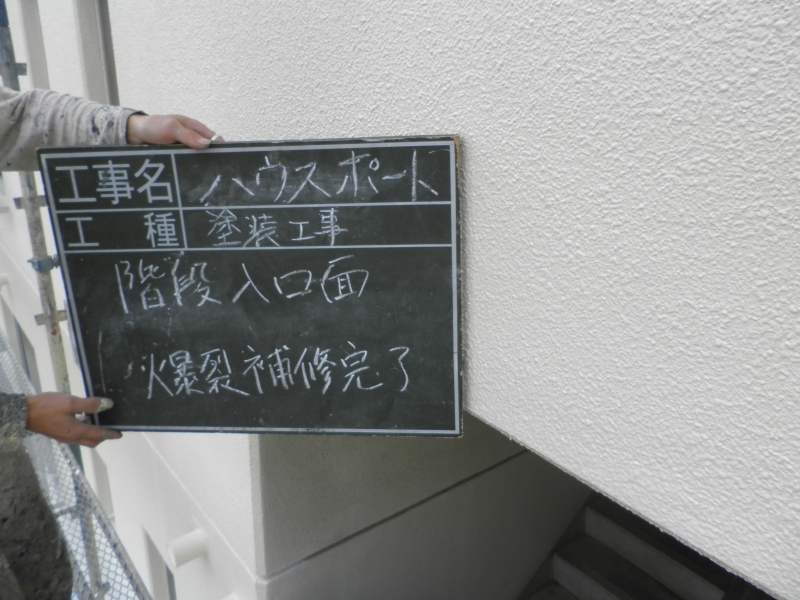 工事名 ハウスポート
工種 塗装工事
階段入口面
爆裂補修完了